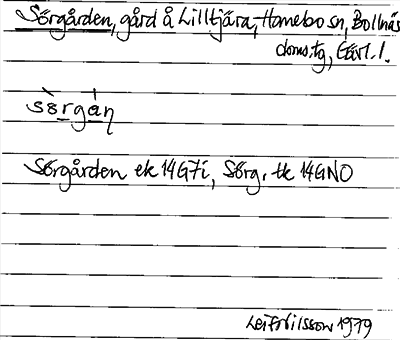 Sörgården, gård å Lilltjära, Hanebo sn, Bollnäs
doms.tg, Gävl. l.
sò̱rgá̱ṇ
Sörgården ek 14G7i, Sörg. tk 14GNO
Leif Nilsson 1979